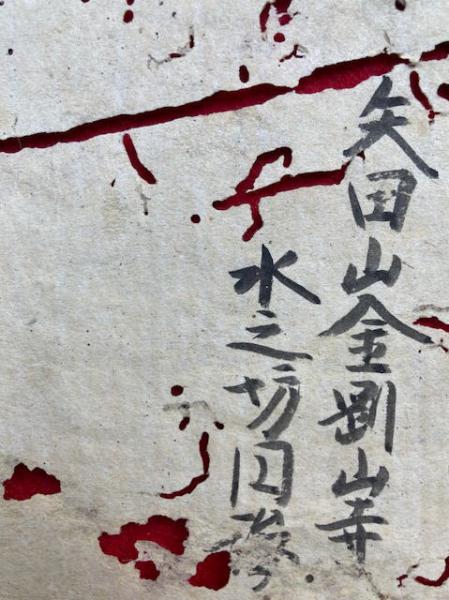 矢田山金剛山寺
水之坊円